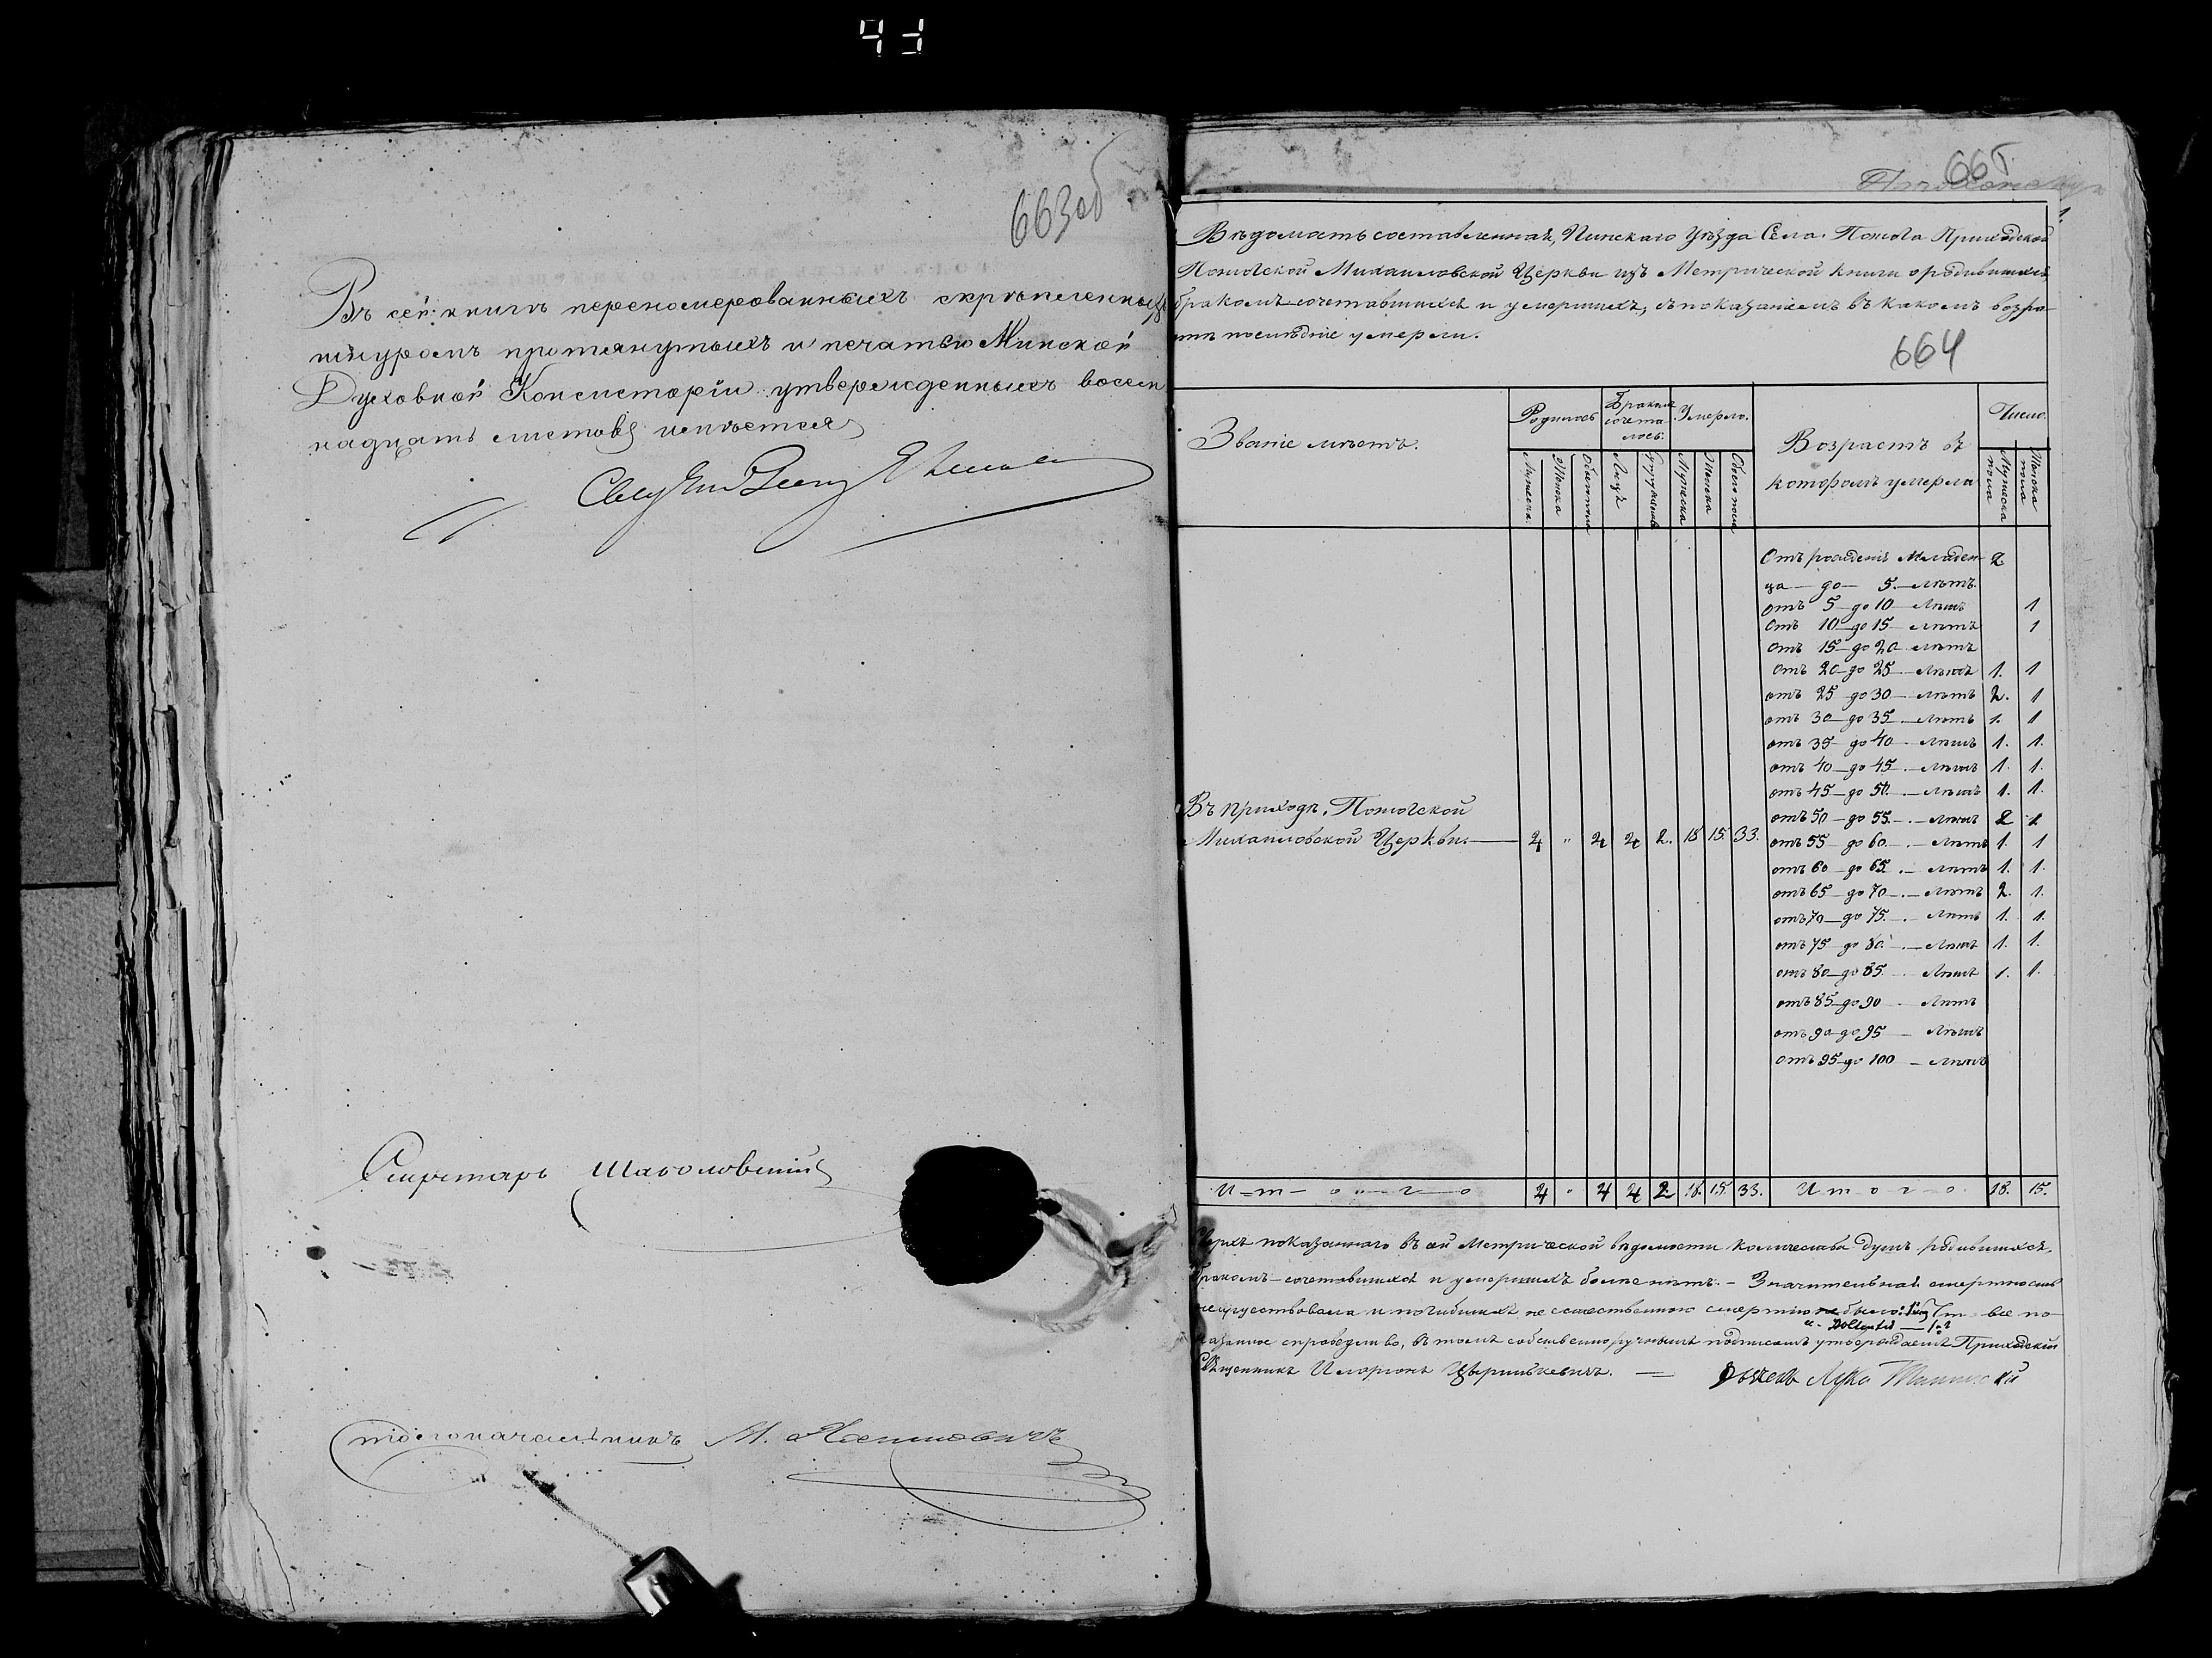 663об
Въ сей книгѣ перенумерованныхъ скрѣпленныхъ
шнуромъ протянутыхъ и печатью Минской
Духовной Консисторіи утвержденныхъ восем
надцать листовъ имѣется
Секретарь
Столоначальникъ М.
665
Вѣдомость составленная, Пинскаго Уѣзда Села Приходской
Михайловской Церкви изъ Метрической книги о родившихся,
бракомъ сочетавшихся и умершихъ, съ показаніемъ въ какомъ возра-
стѣ послѣдніе умерли.
664
Званіе мѣстъ.
Родилось
Бракомъ сочета лось.
Умерло.
Возрастъ въ которомъ умерли
Число.
Мужеска Женска Обоего пола Лицъ Супружествъ Мужеска Женска Обоего пола Мужеска пола Женска пола
Отъ рожденія Младен- 2
ца — до — 5. — лѣтъ.
отъ 5 — до 10 — лѣтъ 1
отъ 10 — до 15 — лѣтъ 1
отъ 15 — до 20 — лѣтъ
отъ 20 — до 25 — лѣтъ 1. 1
отъ 25 — до 30 — лѣтъ 2. 1
отъ 30 — до 35 — лѣтъ 1. 1
отъ 35 — до 40 — лѣтъ 1. 1.
отъ 40 — до 45 — лѣтъ 1. 1.
отъ 45 — до 50 — лѣтъ 1. 1.
отъ 50 — до 55 — лѣтъ 2 1
отъ 55 — до 60 — лѣтъ 1. 1
отъ 60 — до 65 — лѣтъ 1. 1.
отъ 65 — до 70 — лѣтъ 2. 1.
отъ 70 — до 75 — лѣтъ 1. 1.
отъ 75 — до 80 — лѣтъ 1. 1.
отъ 80 — до 85 — лѣтъ 1. 1.
отъ 85 — до 90 — лѣтъ
отъ 90 — до 95 — лѣтъ
отъ 95 — до 100 — лѣтъ
Въ приходѣ,
Михайловской Церкви. — 4 „ 4 4 2. 18 15 33.
И — т — о — г — о 4 „ 4 4 2 18. 15. 33. И т о г о 18. 15.
показаннаго въ сей Метрической вѣдомости количества душъ родившихся,
бракомъ — сочетавшихся и умершихъ болѣе нѣтъ. — Значительная смертность
и погибшихъ не естественною смертію не было: Что все по-
казанное справедливо, въ томъ собственноручнымъ подписомъ утверждаемъ Приходскій
Священникъ Иларіонъ —